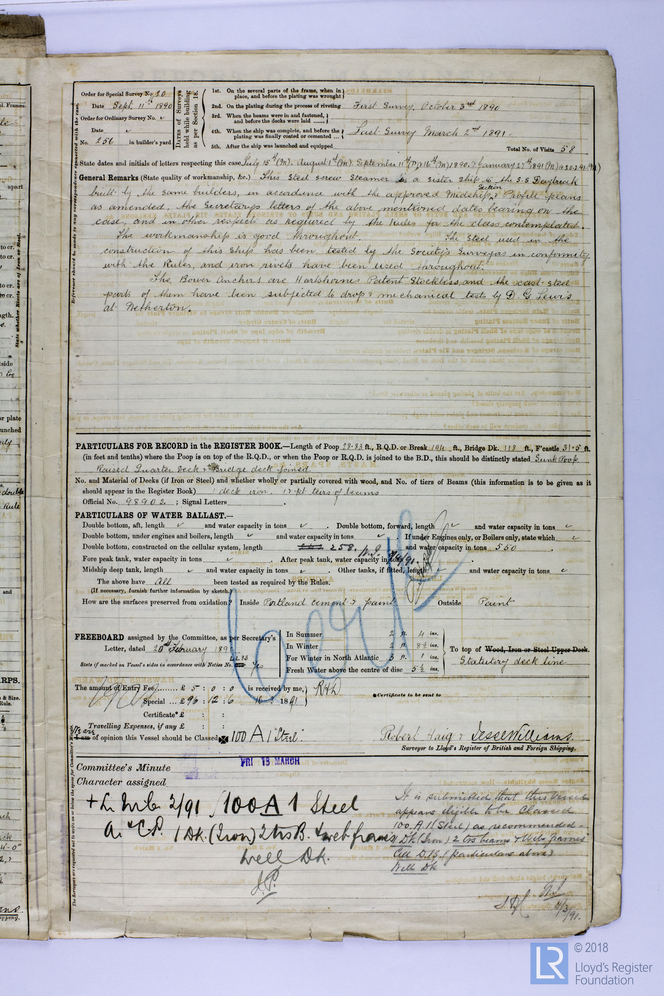 Order for Special Survey No. 30
Date Sept. 11th 1890
Order for Ordinary Survey No.
Date
No. 256 in builder's yard.
Dates of Surveys held while building as per Section 18.
1st. On the several parts of the frame, when in place, and before the plating was wrought
2nd. On the plating during the process of riveting
3rd. When the beams were in and fastened, and before the decks were laid
4th. When the ship was complete, and before the plating was finally coated or cemented
5th. After the ship was launched and equipped
First Survey, October 3rd 1890
Last Survey March 2nd 1891
Total No. of Visits 58
State dates and initials of letters respecting this case July 15th (M). August 1st (M). September 11th
General Remarks (State quality of workmanship, &c.) This steel screw steamer is a sister ship to the S.S. Daybreak
built by the same builders, in accordance with the approved Midship Section & Profile plans
as amended, the Secretary's letters of the above mentioned dates bearing on the
case, and in other respects as required by the Rules for the class contemplated.
The workmanship is good throughout. The steel used in the
construction of this ship has been tested by the Society's Surveyors in conformity
with the Rules, and iron rivets have been used throughout.
The Bower Anchors are Hartshorne Patent Stockless and the cast steel
parts of them have been subjected to drop & mechanical tests by D. G. Lewis
at Netherton.
PARTICULARS FOR RECORD in the REGISTER BOOK.—Length of Poop 28.83 ft., R.Q.D. or Break 104 ft., Bridge Dk. 118 ft., F'castle 31.5 ft.
(in feet and tenths) where the Poop is on top of the R.Q.D., or when the Poop or R.Q.D. is joined to the B.D., this should be distinctly stated Sunk Poop
Raised Quarter deck & Bridge deck joined
No. and Material of Decks (if Iron or Steel) and whether wholly or partially covered with wood, and No. of tiers of Beams (this information is to be given as it
should appear in the Register Book) 1 deck iron. tiers of beams
Official No. 98902 ; Signal Letters
PARTICULARS OF WATER BALLAST.—
Double bottom, aft, length and water capacity in tons . Double bottom, forward, length and water capacity in tons
Double bottom, under engines and boilers, length and water capacity in tons If under Engines only, or Boilers only, state which
Double bottom, constructed on the cellular system, length 258. and water capacity in tons 550
Fore peak tank, water capacity in tons . After peak tank, water capacity in tons
Midship deep tank, length and water capacity in tons . Other tanks, if fitted, length and water capacity in tons
The above have All been tested as required by the Rules.
(If necessary, furnish further information by sketch.)
How are the surfaces preserved from oxidation? Inside Portland cement & paint Outside Paint
FREEBOARD assigned by the Committee, as per Secretary's
Letter, dated 20th February 1891
State if marked on Vessel's sides in accordance with Notice No. Yes
In Summer 2 ft. 4 ins.
In Winter 2 ft. 8½ ins.
For Winter in North Atlantic 3 ft. 1 ins.
Fresh Water above the centre of disc 5½ ins.
To top of Wood, Iron or Steel Upper Deck.
Statutory deck line
The amount of Entry Fee £ 5 : 0 : 0 is received by me,
Special £ 96 : 12 : 6 1891
Certificate* £ : :
Travelling Expenses, if any £ : :
*Certificate to be sent to
of opinion this Vessel should be Classed 100 A 1 Steel.
Robert Haig & Jesse Williams.
Surveyor to Lloyd's Register of British and Foreign Shipping.
Committee's Minute FRI 13 MARCH
Character assigned
+ L.M.C. 2/91 100 A 1 Steel
A & C.P. 1 Dk (Iron) 2 trs B. & web frames
Well Dk.
It is submitted that this vessel
appears eligible to be classed
100 A 1 (Steel) as recommended
1 Dk (Iron) 2 trs beams & Web frames
Cell D.B. (particulars above)
Well Dk
11/3/91.
LR
© 2018
Lloyd's Register
Foundation